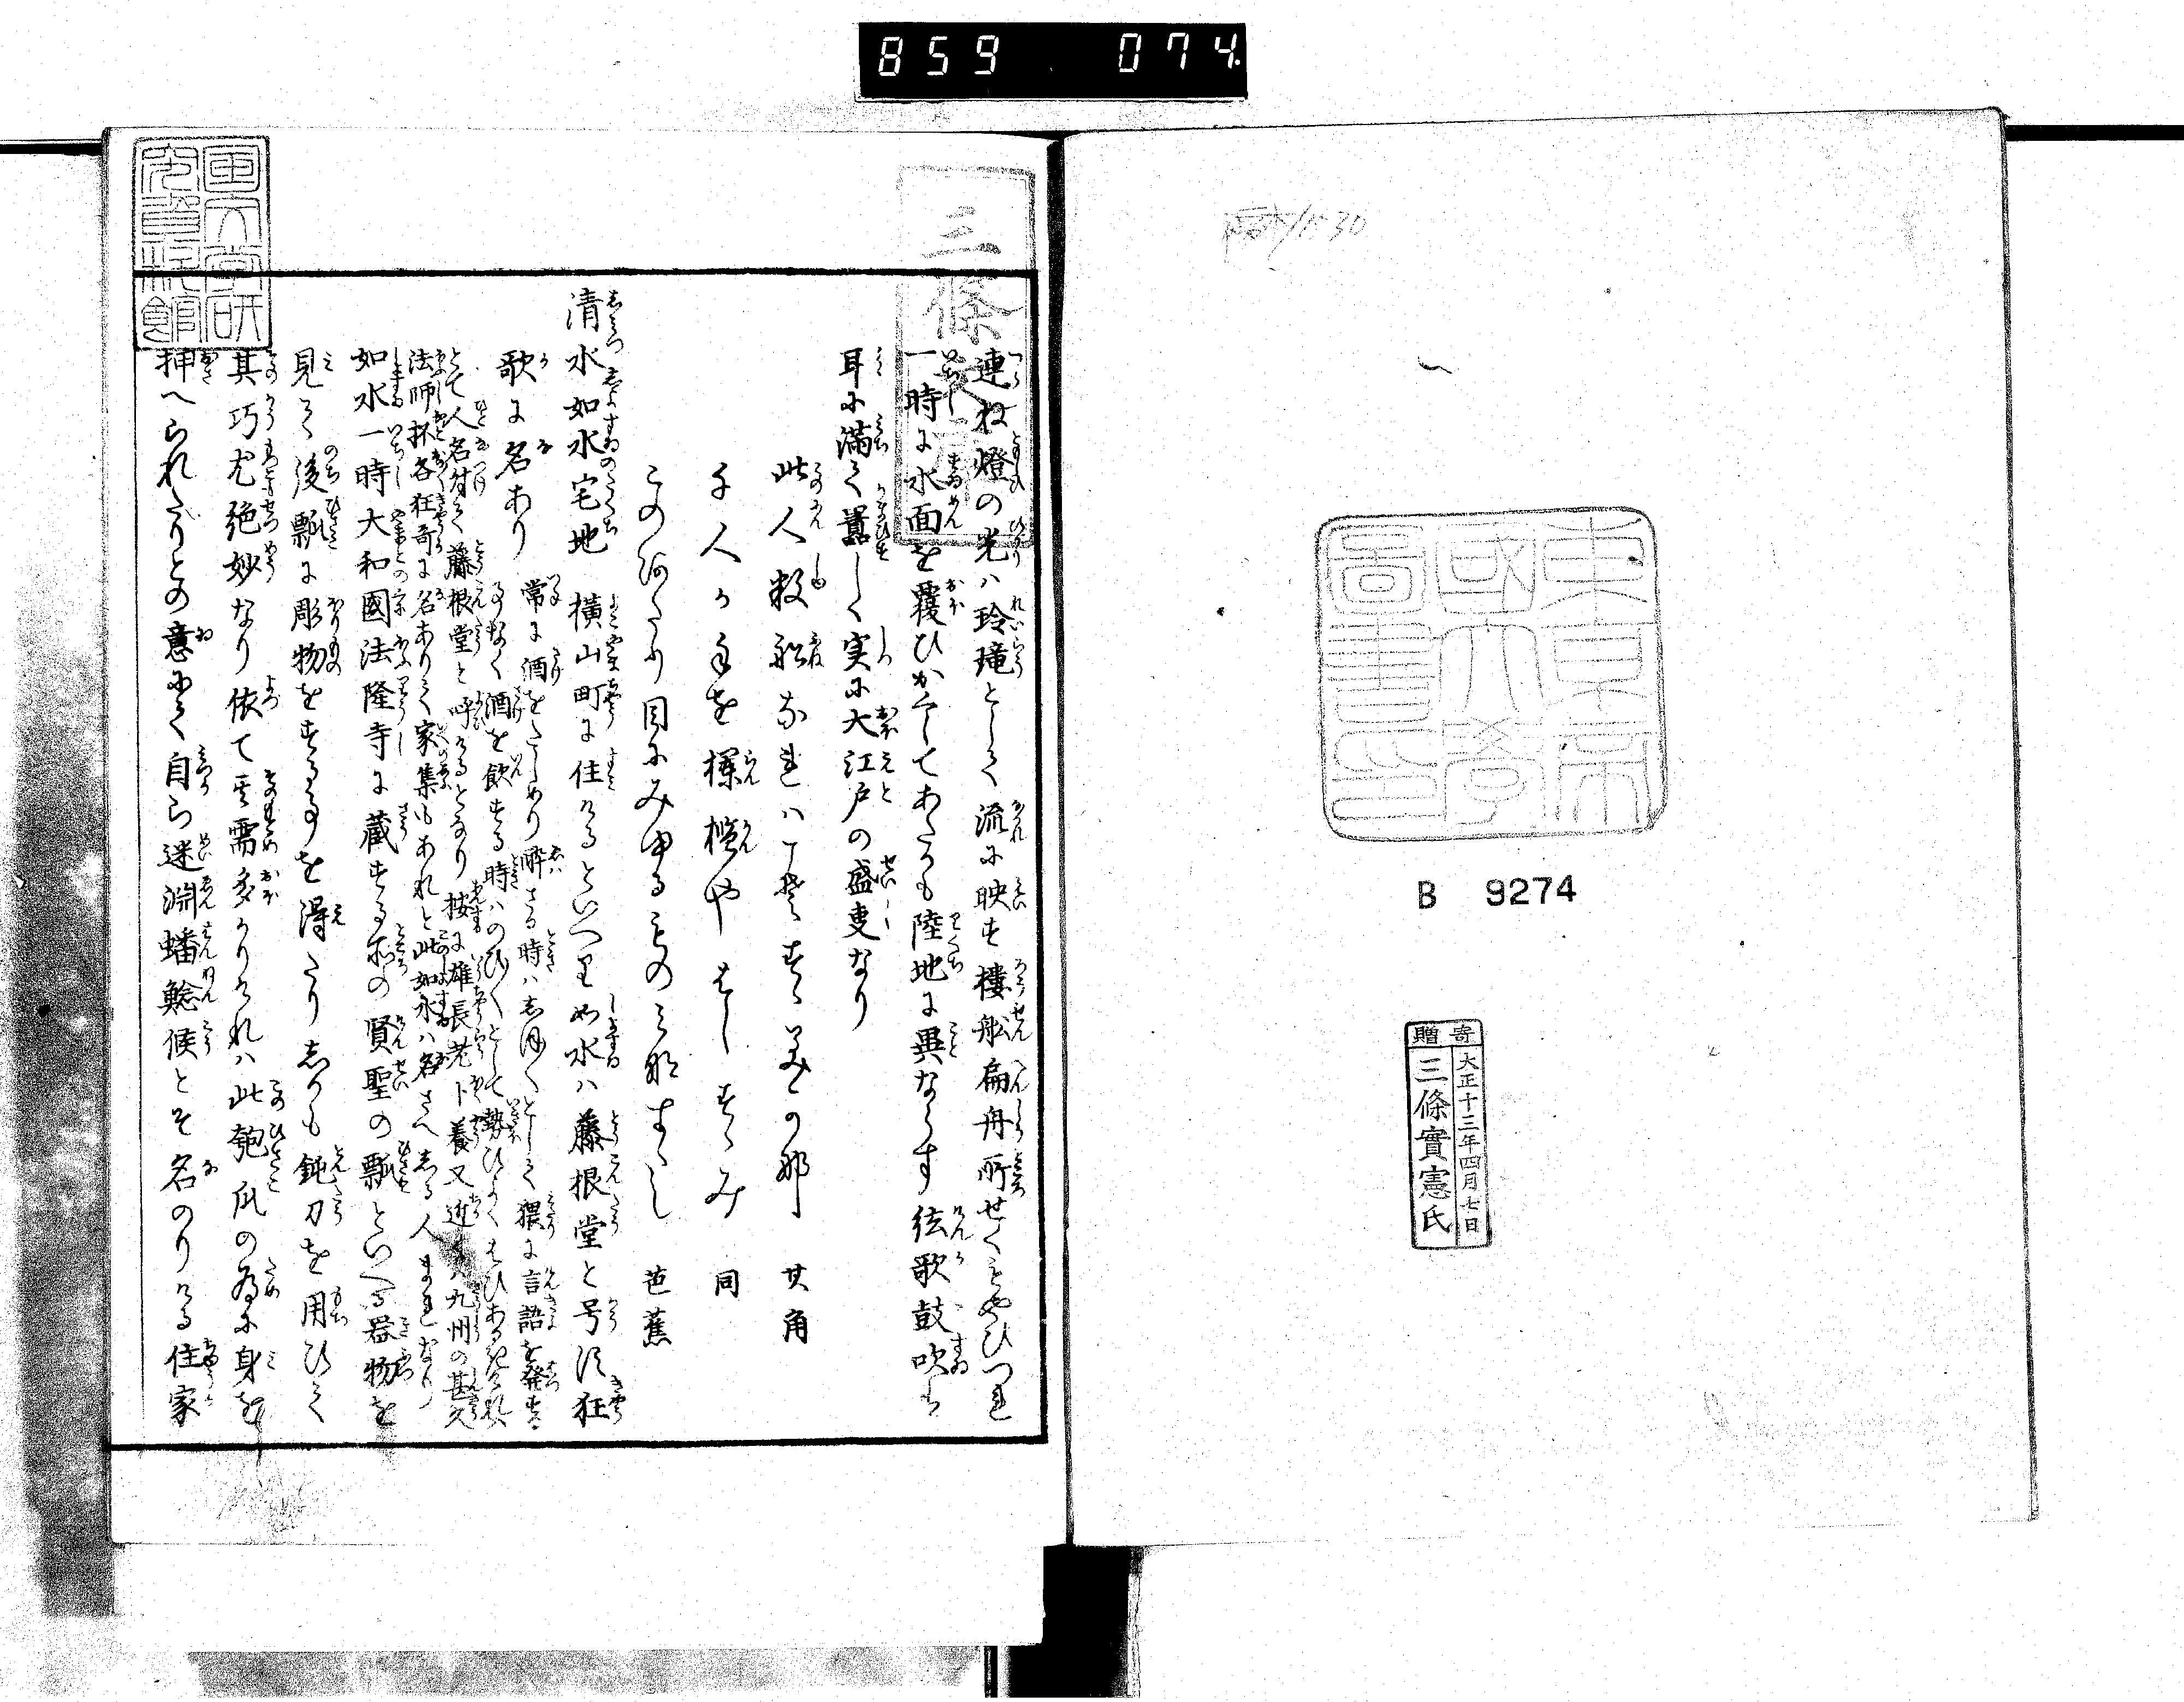 859 074
東京帝
國大學
圖書印
B 9274
寄贈
大正十三年四月七日
三條實憲氏
連ね燈の光ハ玲瓏として流に映す樓舩扁舟所せくもやひつれ
一時に水面を覆ひかくしてあたかも陸地に異ならす絃歌鼓吹は
耳に満て囂しく実に大江戸の盛事なり
此人数船なれハこそすゝみかな 其角
千人か手を欄檻やはしすゝみ 同
このあたり目にみゆるものみなすゝし 芭蕉
清水如水宅地 横山町に住けるといへり如水ハ藤根堂と号し狂
歌に名あり
常に酒をたしめり酔さる時ハ
猥に言語を発せす
酒を飲せる時ハのひ〱として勢ひよく
とて人名付て藤根堂と呼けるとなり按に雄長老卜養又近くハ九州の甚久
法師抔各狂哥に名ありて家集もあれと此如水ハ名さへしる人まれなり
如水一時大和國法隆寺に蔵する所の賢聖の瓢といへる器物を
見て後瓢に彫物をする事を得たりしかも鈍刀を用ひて
其巧尤絶妙なり依て其需多かりけれハ此匏瓜の為に身を
押へられたりとの意にて自ら迷淵蟠鯰候とそ名のりける住家